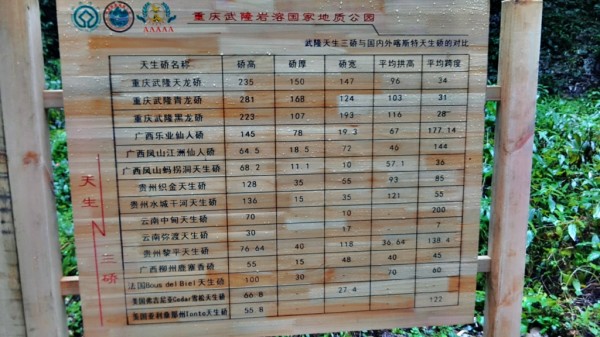 AAAAA
重庆武隆岩溶国家地质公园
武隆天生三硚与国内外喀斯特天生硚的对比
天生硚名称 硚高 硚厚 硚宽 平均拱高 平均跨度
重庆武隆天龙硚 235 150 147 96 34
重庆武隆青龙硚 281 168 124 103 31
重庆武隆黑龙硚 223 107 193 116 28
广西乐业仙人硚 145 78 19.3 67 177.14
广西凤山江洲仙人硚 64.5 18.5 72 46 144
广西凤山蚂拐洞天生硚 68.2 11.1 10 57.1 36
贵州织金天生硚 128 35 55 93 85
贵州水城干河天生硚 136 15 35 121 55
云南中甸天生硚 70 10 200
云南弥渡天生硚 30 17 7
贵州黎平天生硚 76.64 40 118 36.64 138.4
广西柳州鹿寨香硚 55 15 48 40 45
法国Bous del Biel天生硚 100 30 70 60
美国弗吉尼亚Cedar雪松天生硚 66.8 27.4
美国亚利桑那州Tonto天生硚 55.8 122
天生
三硚